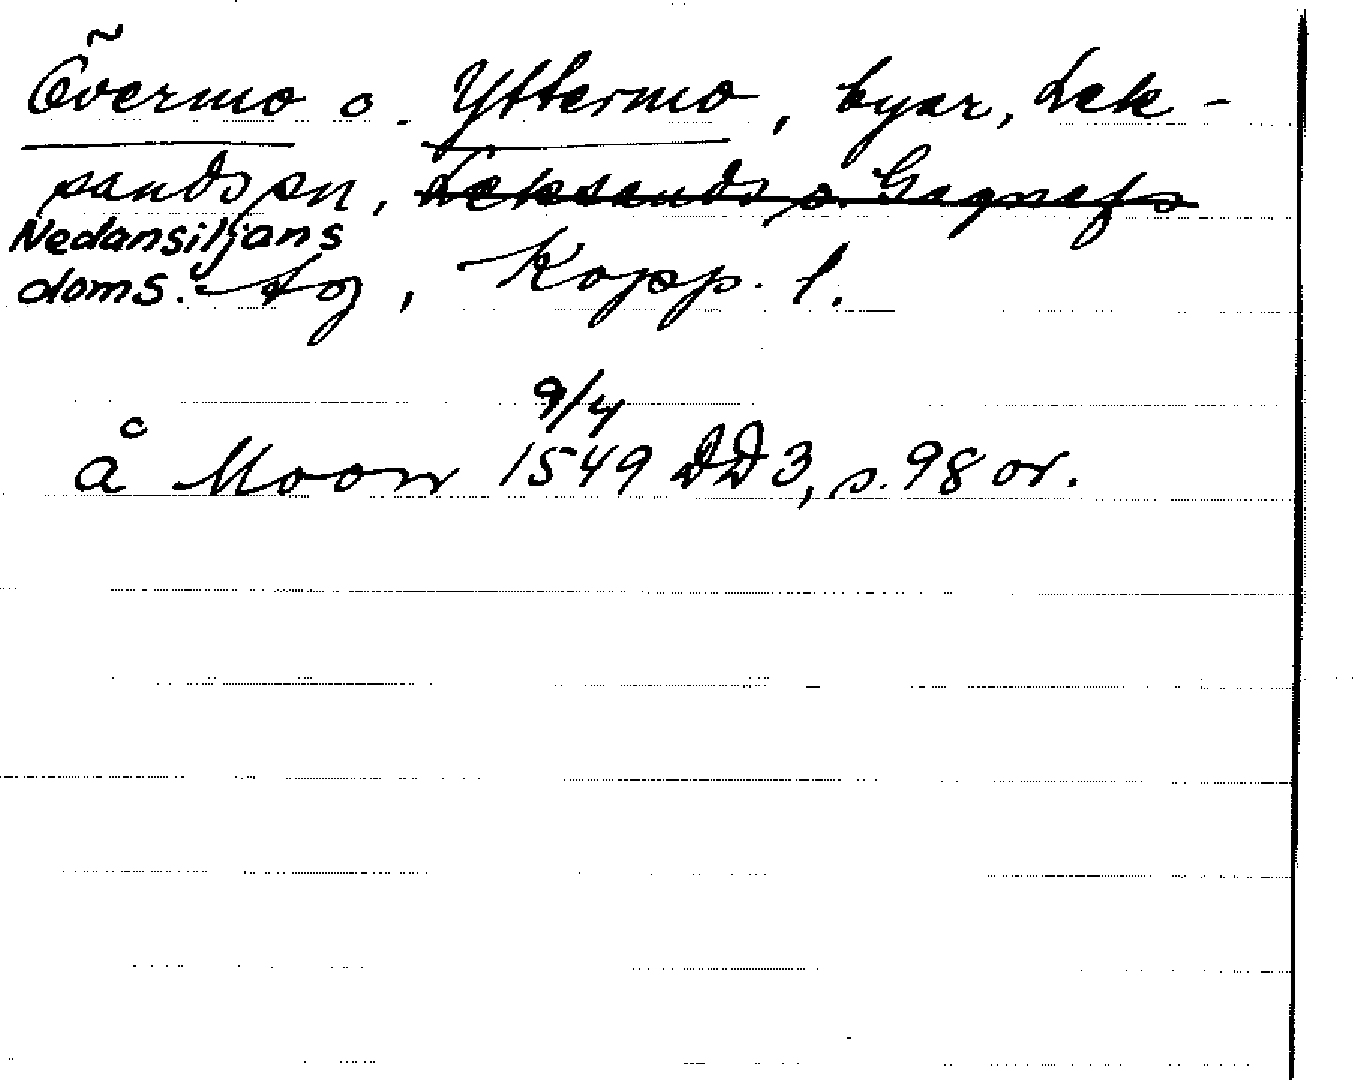 Övermo o. Yttermo, byar, Lek-
sands sn, Leksands o. Gagnefs
Nedansiljans
doms. tg, Kopp. l.
9/4
å Moon 1549 DD3, s. 98 or.